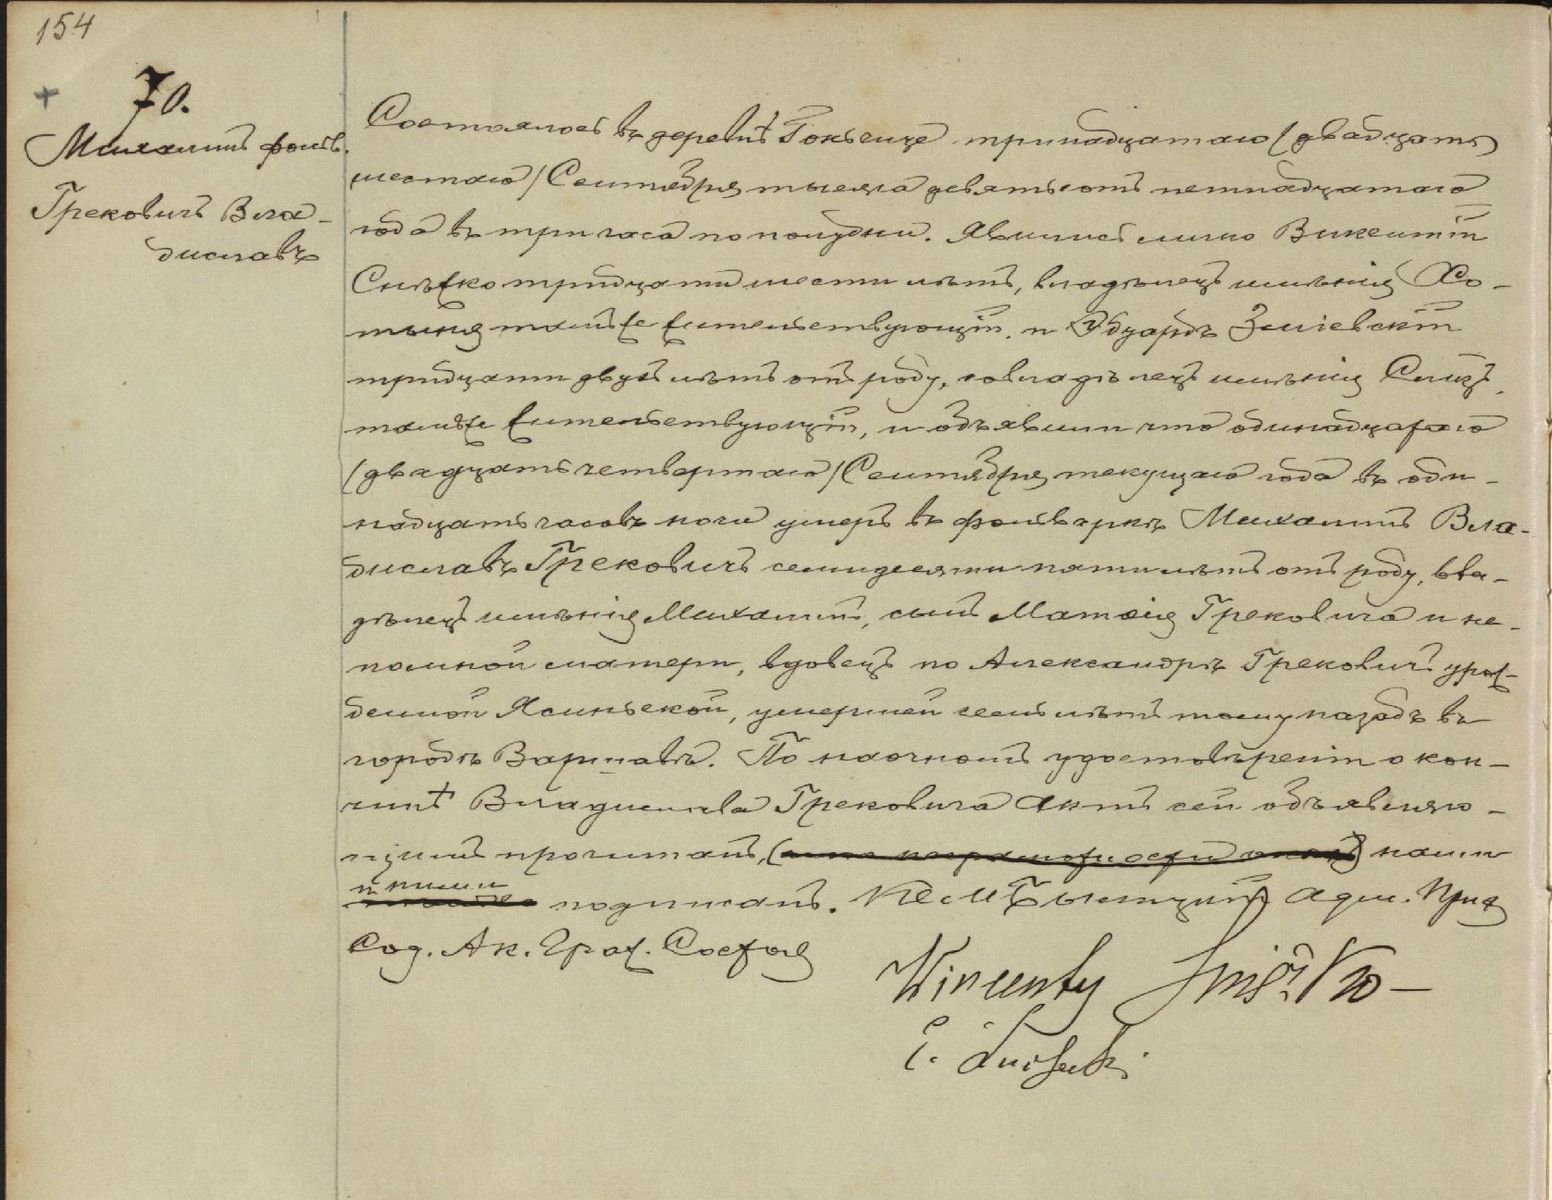 154
70.
Михалинъ фольв.
Грековичъ Вла-
диславъ
Состоялось въ деревнѣ тринадцатаго /двадцать
шестаго/ Сентября тысяча девятьсотъ пятнадцатаго
года въ три часа по полудни. Явились лично Викентій
Снѣжко тридцати шести лѣтъ, владѣлецъ имѣнія Хо-
тыня тамъже жительствующій. и Эдуардъ Змiевскій
тридцати двухъ лѣтъ отъ роду, совладѣлецъ имѣнія
тамъже жительствующій, и объявили что одинадцатаго
/двадцать четвертаго/ Сентября текущаго года въ оди-
надцать часовъ ночи умеръ въ фольваркѣ Михалинъ Вла-
диславъ Грековичъ семидесяти пяти лѣтъ отъ роду, вла-
дѣлецъ имѣнія Михалинъ, сынъ Матвія Грековича и не-
помной матери, вдовецъ по Александрѣ Грековичъ урож-
денной Ясиньской, умершей семь лѣтъ тому назадъ въ
городѣ Варшавѣ. По наочномъ удостовѣреніи о кон-
чинѣ Владислава Грековича актъ сей объявляю-
щимъ прочитанъ, нами
и ними
подписанъ. Кс. М. Адм. Прих
Сод. Ак. Граж. Состоя
Wincenty
E.